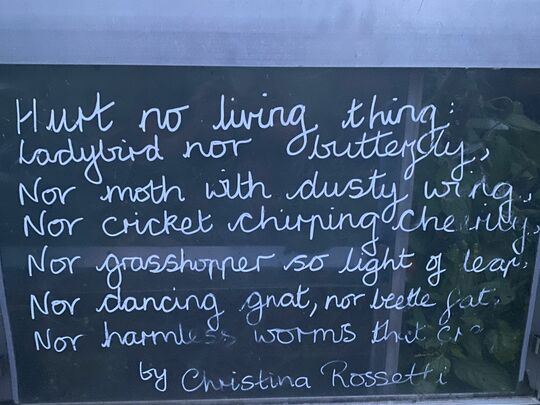 Hurt no living thing:
Ladybird nor butterfly,
Nor moth with dusty wing,
Nor cricket chirping cheerily,
Nor grasshopper so light of leap,
Nor dancing gnat, nor beetle fat,
Nor harmless worms that
by Christina Rossetti